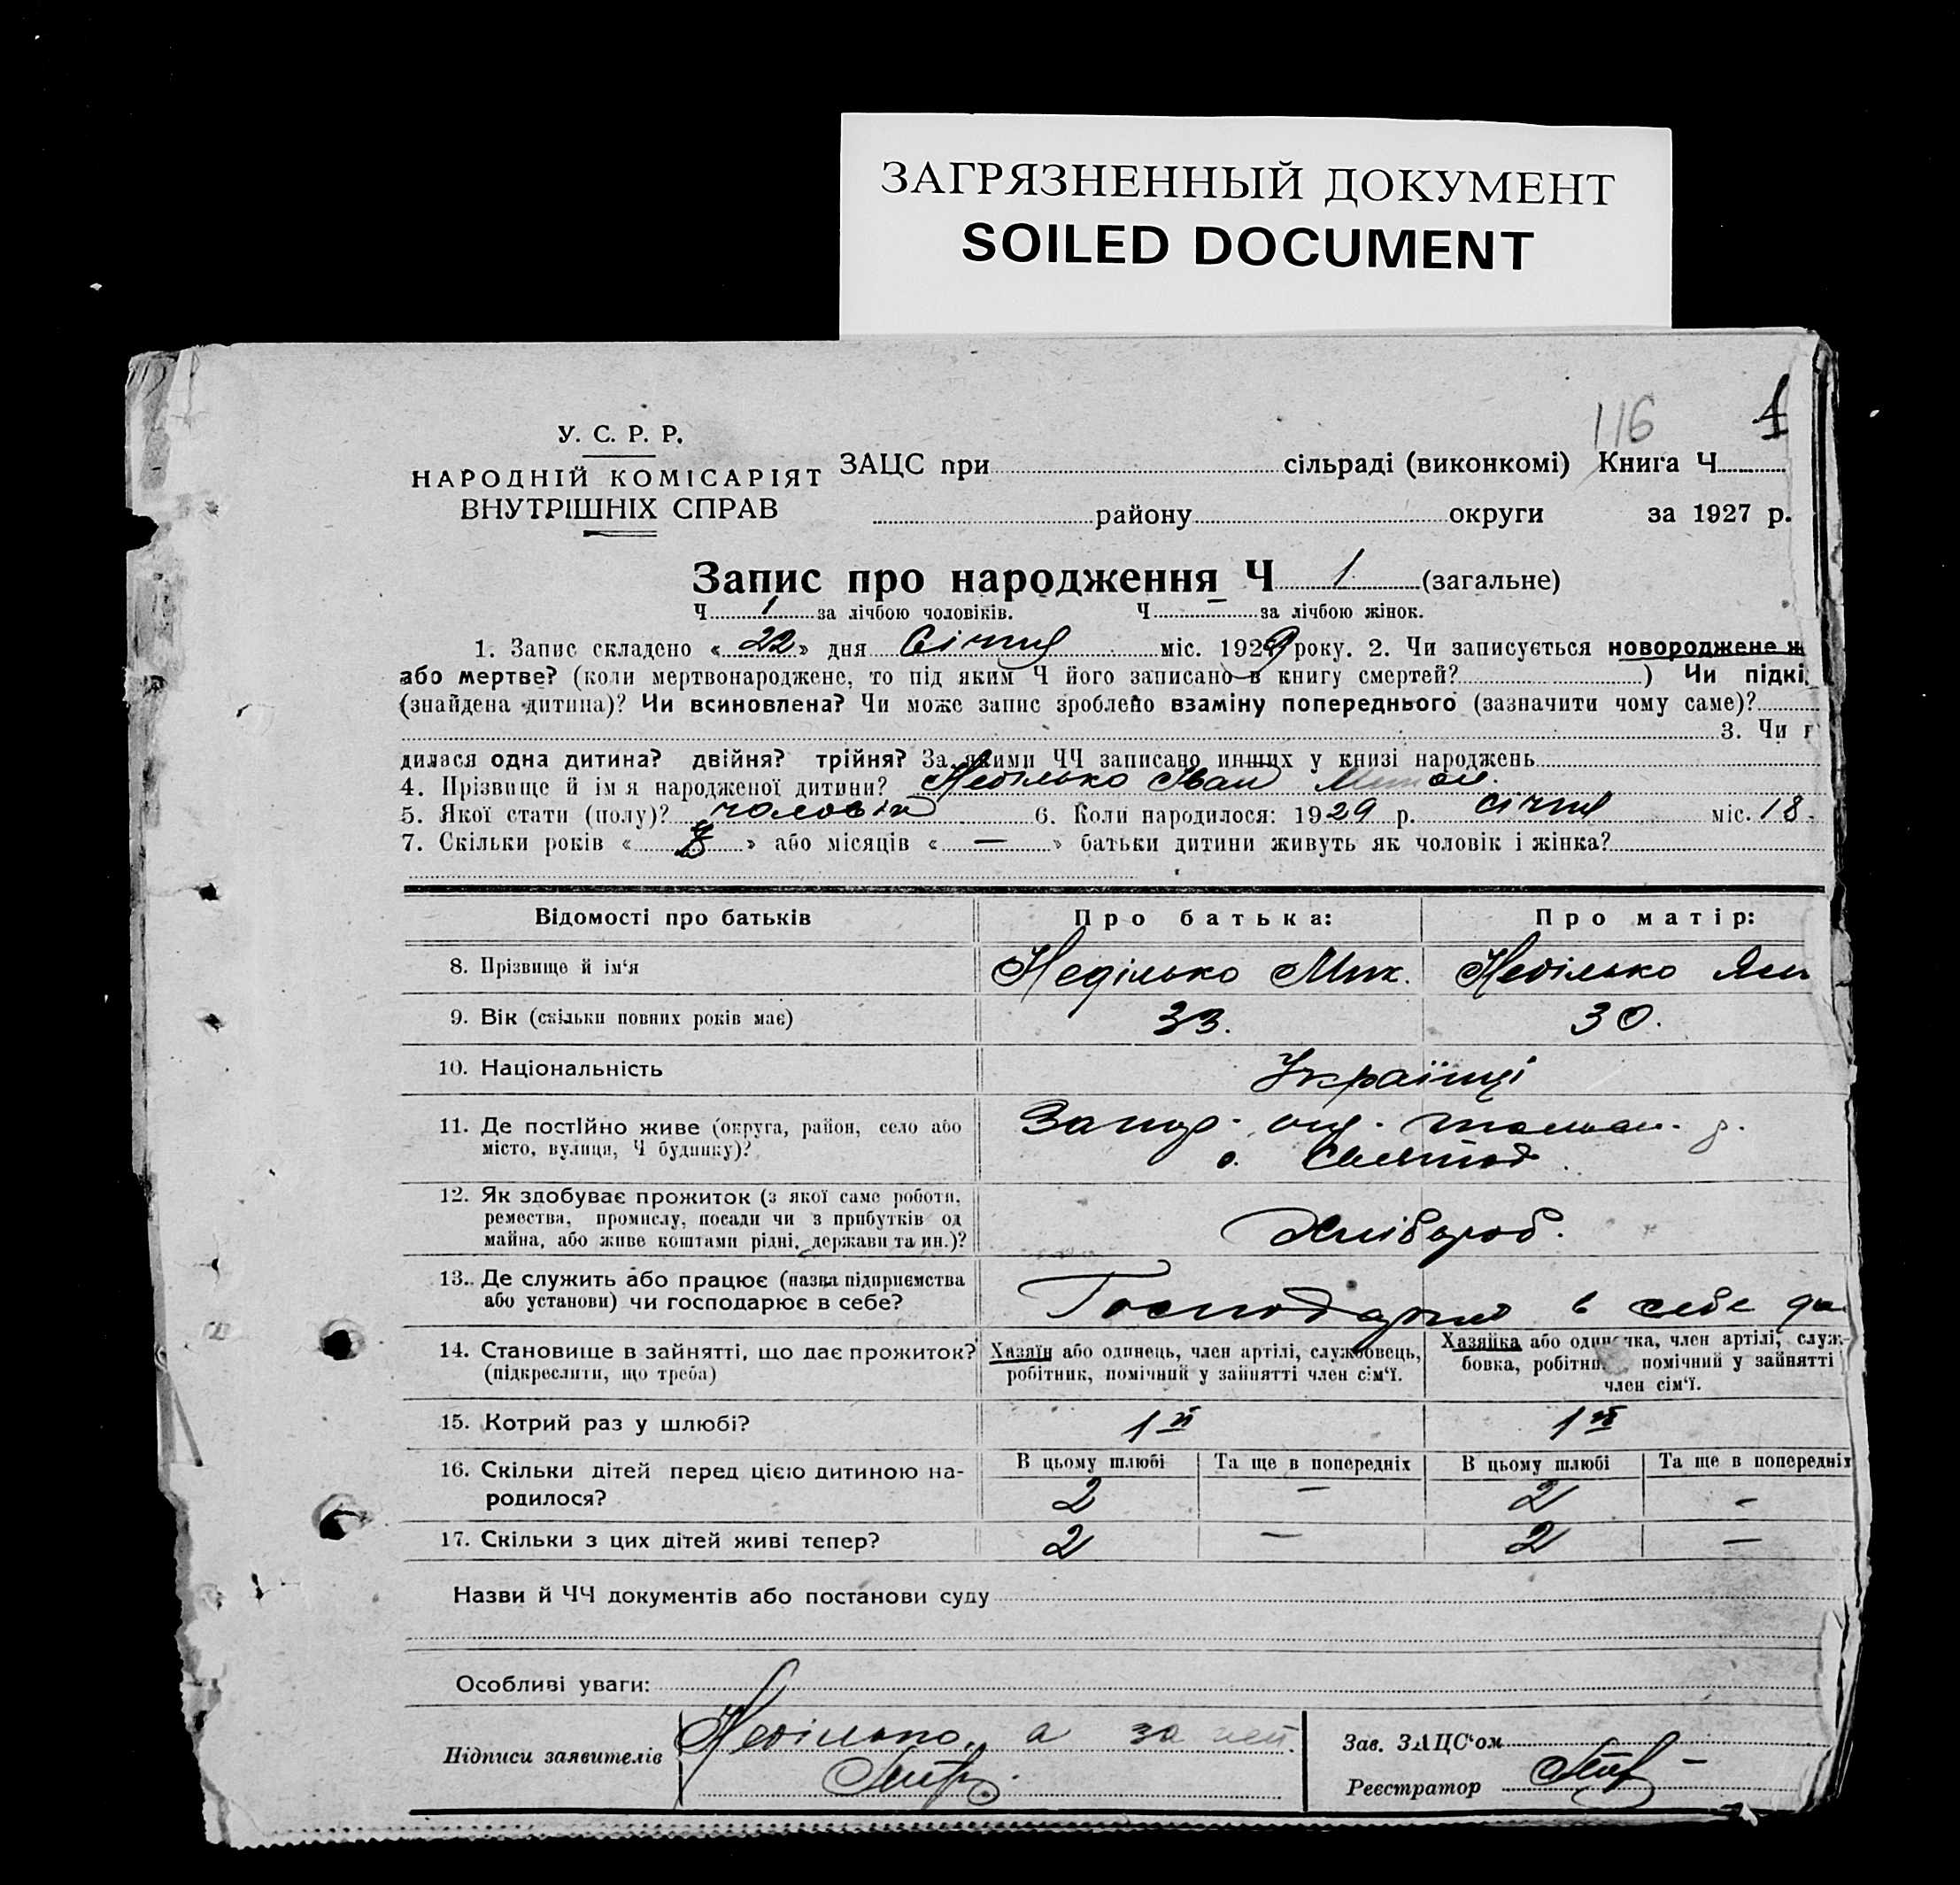 ЗАГРЯЗНЕННЫЙ ДОКУМЕНТ
SOILED DOCUMENT
116
1
У. С. Р. Р.
НАРОДНІЙ КОМІСАРІЯТ
ВНУТРІШНІХ СПРАВ
ЗАЦС при сільраді (виконкомі) Книга Ч.
району округи за 1927 р.
Запис про народження Ч 1 (загальне)
Ч 1 за лічбою чоловіків. Ч — за лічбою жінок.
1. Запис складено « 22 » дня Січня міс. 1929 року. 2. Чи записується новороджене ж
або мертве? (коли мертвонароджене, то під яким Ч його записано в книгу смертей? ) Чи підкі
(знайдена дитина)? Чи всиновлена? Чи може запис зроблено взаміну попереднього (зазначити чому саме)?
3. Чи
дилася одна дитина? двійня? трійня? За якими ЧЧ записано инших у книзі народжень
4. Прізвище й ім я народженої дитини? Неділько Іван
5. Якої стати (полу)? чоловік 6. Коли народилося: 1929 р. січня міс. 18.
7. Скільки років « 8 » або місяців « — » батьки дитини живуть як чоловік і жінка?
Відомості про батьків Про батька: Про матір:
8. Прізвище й ім‘я Неділько Мих. Неділько
9. Вік (скільки повних років має) 33. 30.
10. Національність Українці
11. Де постійно живе (округа, район, село або Запор. окр. р.
місто, вулиця, Ч будинку)? с.
12. Як здобуває прожиток (з якої саме роботи,
ремества, промислу, посади чи з прибутків од
майна, або живе коштами рідні, держави та ин.)? Хлібороб.
13. Де служить або працює (назва підприємства
або установи) чи господарює в себе? Господарює в себе
14. Становище в зайнятті, що дає прожиток? Хазяїн або одинець, член артілі, службовець, Хазяйка або одиначка, член артілі, служ-
(підкреслити, що треба) робітник, помічний у зайнятті член сім‘ї. бовка, робітни помічний у зайнятті
член сім‘ї.
15. Котрий раз у шлюбі? 1й 1й
16. Скільки дітей перед цією дитиною на- В цьому шлюбі Та ще в попередніх В цьому шлюбі Та ще в попередніх
родилося? 2 — 2 -
17. Скільки з цих дітей живі тепер? 2 — 2 —
Назви й ЧЧ документів або постанови суду
Особливі уваги:
Підписи заявителів Неділько, а за
Зав. ЗАЦС‘ом
Реєстратор